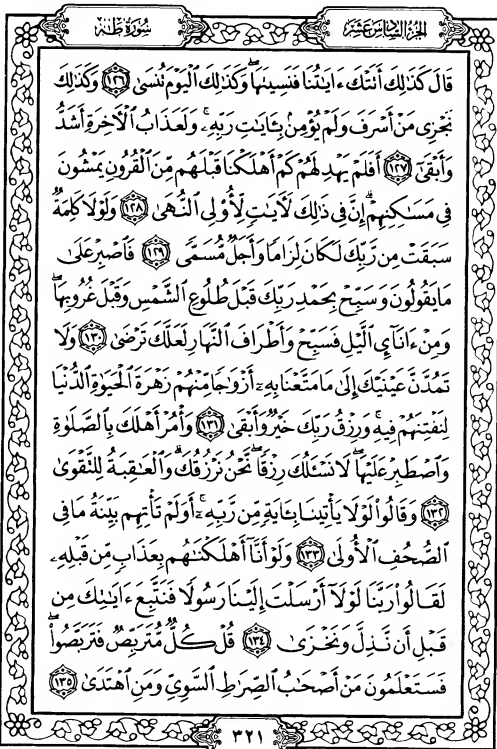 الجزء السادس عشر
سورة طه
قَالَ كَذَٰلِكَ أَتَتْكَ ءَايَٰتُنَا فَنَسِيتَهَا ۖ وَكَذَٰلِكَ ٱلْيَوْمَ تُنسَىٰ ١٢٦ وَكَذَٰلِكَ
نَجْزِى مَنْ أَسْرَفَ وَلَمْ يُؤْمِنۢ بِـَٔايَٰتِ رَبِّهِۦ ۚ وَلَعَذَابُ ٱلْءَاخِرَةِ أَشَدُّ
وَأَبْقَىٰٓ ١٢٧ أَفَلَمْ يَهْدِ لَهُمْ كَمْ أَهْلَكْنَا قَبْلَهُم مِّنَ ٱلْقُرُونِ يَمْشُونَ
فِى مَسَٰكِنِهِمْ ۗ إِنَّ فِى ذَٰلِكَ لَءَايَٰتٍ لِّأُو۟لِى ٱلنُّهَىٰ ١٢٨ وَلَوْلَا كَلِمَةٌ
سَبَقَتْ مِن رَّبِّكَ لَكَانَ لِزَامًا وَأَجَلٌ مُّسَمًّى ١٢٩ فَٱصْبِرْ عَلَىٰ
مَا يَقُولُونَ وَسَبِّحْ بِحَمْدِ رَبِّكَ قَبْلَ طُلُوعِ ٱلشَّمْسِ وَقَبْلَ غُرُوبِهَا ۖ
وَمِنْ ءَانَآئِ ٱلَّيْلِ فَسَبِّحْ وَأَطْرَافَ ٱلنَّهَارِ لَعَلَّكَ تَرْضَىٰ ١٣٠ وَلَا
تَمُدَّنَّ عَيْنَيْكَ إِلَىٰ مَا مَتَّعْنَا بِهِۦٓ أَزْوَٰجًا مِّنْهُمْ زَهْرَةَ ٱلْحَيَوٰةِ ٱلدُّنْيَا
لِنَفْتِنَهُمْ فِيهِ ۚ وَرِزْقُ رَبِّكَ خَيْرٌ وَأَبْقَىٰ ١٣١ وَأْمُرْ أَهْلَكَ بِٱلصَّلَوٰةِ
وَٱصْطَبِرْ عَلَيْهَا ۖ لَا نَسْـَٔلُكَ رِزْقًا ۖ نَّحْنُ نَرْزُقُكَ ۗ وَٱلْعَٰقِبَةُ لِلتَّقْوَىٰ
١٣٢ وَقَالُوا۟ لَوْلَا يَأْتِينَا بِـَٔايَةٍ مِّن رَّبِّهِۦٓ ۚ أَوَلَمْ تَأْتِهِم بَيِّنَةُ مَا فِى
ٱلصُّحُفِ ٱلْأُولَىٰ ١٣٣ وَلَوْ أَنَّآ أَهْلَكْنَٰهُم بِعَذَابٍ مِّن قَبْلِهِۦ
لَقَالُوا۟ رَبَّنَا لَوْلَآ أَرْسَلْتَ إِلَيْنَا رَسُولًا فَنَتَّبِعَ ءَايَٰتِكَ مِن
قَبْلِ أَن نَّذِلَّ وَنَخْزَىٰ ١٣٤ قُلْ كُلٌّ مُّتَرَبِّصٌ فَتَرَبَّصُوا۟ ۖ
فَسَتَعْلَمُونَ مَنْ أَصْحَٰبُ ٱلصِّرَٰطِ ٱلسَّوِىِّ وَمَنِ ٱهْتَدَىٰ ١٣٥
٣٢١